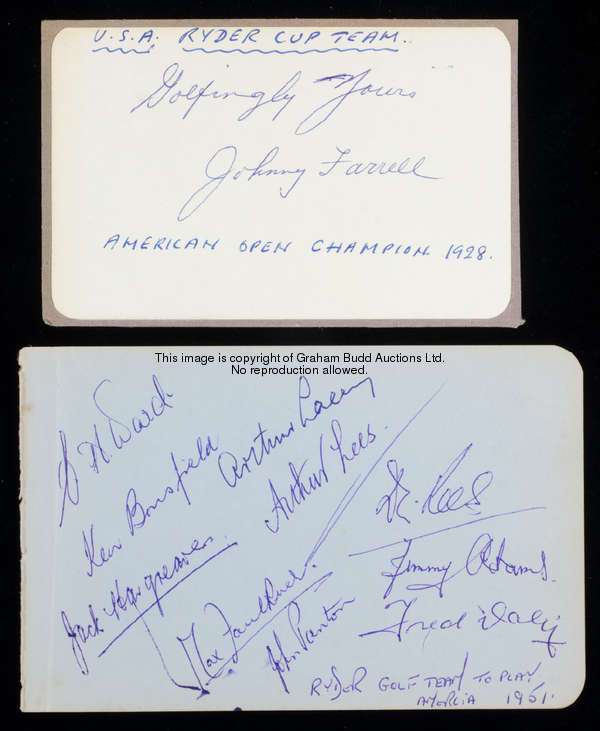 U.S.A. RYDER CUP TEAM.
Golfingly Yours
Johnny Farrell
AMERICAN OPEN CHAMPION. 1928.
This image is copyright of Graham Budd Auctions Ltd.
No reproduction allowed.
C H Ward
Ken Bousfield
Arthur Lacey
Arthur Lees.
Jack Hargreaves.
Max Faulkner.
John Panton
D. Rees
Jimmy Adams.
Fred Daly
RYDER GOLF TEAM TO PLAY
1951.